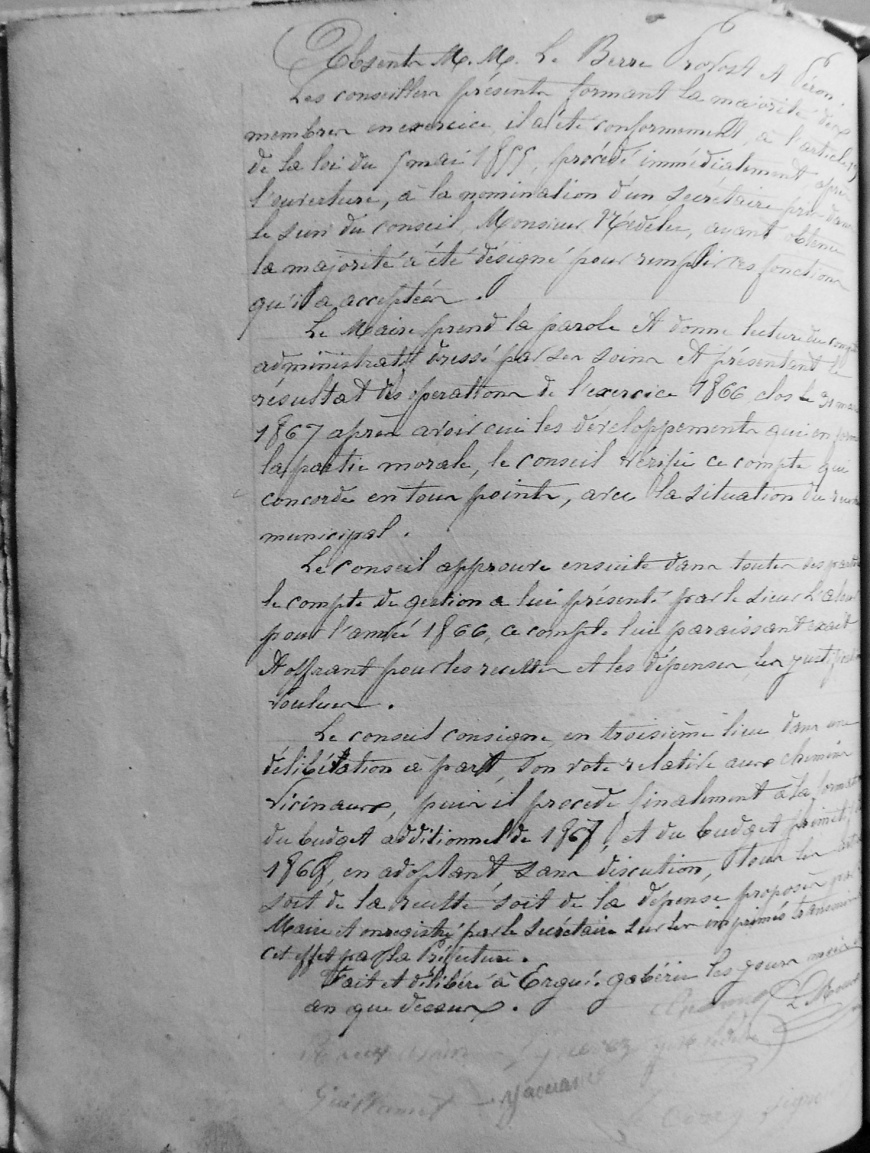 Absents M. M. Le Berre Provost et Péron.
Les conseillers présents formant la majorité des
membres en exercice, il a été conformément, à l'article 19
de la loi du 5 mai 1855, procédé immédiatement, après
l'ouverture, à la nomination d'un secrétaire pris dans
le sein du conseil, Monsieur Nédelec, ayant obtenu
la majorité a été désigné pour remplir ces fonctions
qu'il a acceptées.
Le Maire prend la parole et donne lecture du compte
administratif dressé par ses soins et présentant le
résultat des opérations de l'exercice 1866 clos le 31 mars
1867 après avoir ouï les développements qui en forme
la partie morale, le conseil vérifie ce compte qui
concorde en tous points, avec la situation du receveur
municipal.
Le conseil approuve ensuite dans toutes ses parties
le compte de gestion a lui présenté par le sieur
pour l'année 1866, ce compte lui paraissant exact
et offrant pour les recettes et les dépenses, les justifications
voulues.
Le conseil consigne en troisième lieu dans une
délibération à part, son vote relatif aux chemins
vicinaux, puis il procède finalement à la formation
du budget additionnel de 1867, et du budget primitif
1868, en adoptant, sans discution, tous les
soit de la recette soit de la dépense proposés par
Maire et enregistré par le secrétaire sur les imprimés transmis
cet effet par la Préfecture.
Fait et délibéré à Ergué-gabéric les jours mois
an que dessus.